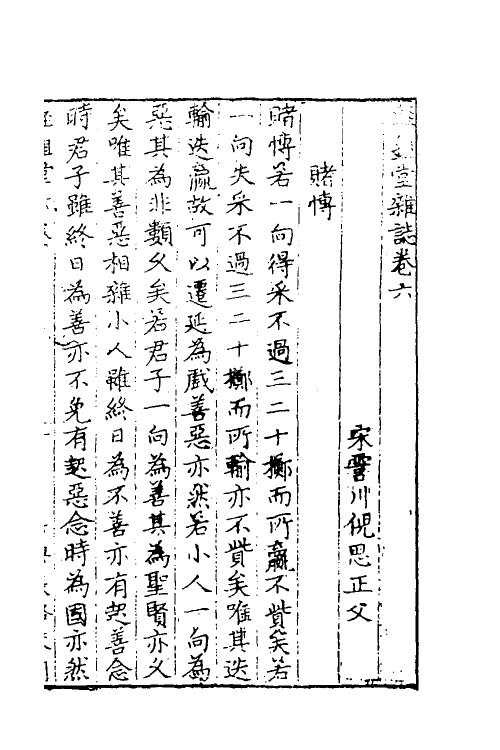 堂雜誌卷六
宋霅川倪思正父
賭博
賭博若一向得采不過三二十擲而所贏不貲矣若
一向失采不過三二十擲而所輸亦不貲矣唯其迭
輸迭贏故可以遷延為戲善惡亦然若小人一向為
惡其為非類父矣若君子一向為善其為聖賢亦父
矣唯其善惡相雜小人雖終日為不善亦有起善念
時君子雖終日為善亦不免有起惡念時為國亦然